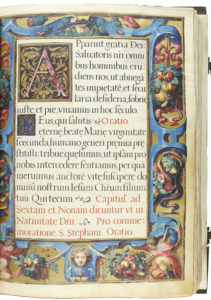 Apparuit gratia Dei
Saluatoris nr̄i omni
bus hominibus, eru
diens nos, ut abnegā
tes impietatē, et secu
laria desideria, sobrie
iuste, et pie, viuamus in hoc seculo
Deus, qui salutis Oratio.
eterne, beate Marie, virginitate
foecunda, humano generi premia pre
stitisti: tribue quesumus, ut ipsam pro
nobis intercedere sentiamus, per quā
meruimus auctorē vite suscipere do
minū nostrum Iesum Christum filium
tuū Qui tecum. Capitulū ad
Sextam et Nonam dicuntur vt in
Natiuitate Dn̄i. Pro comme-
moratione S. Stephani. Oratio.